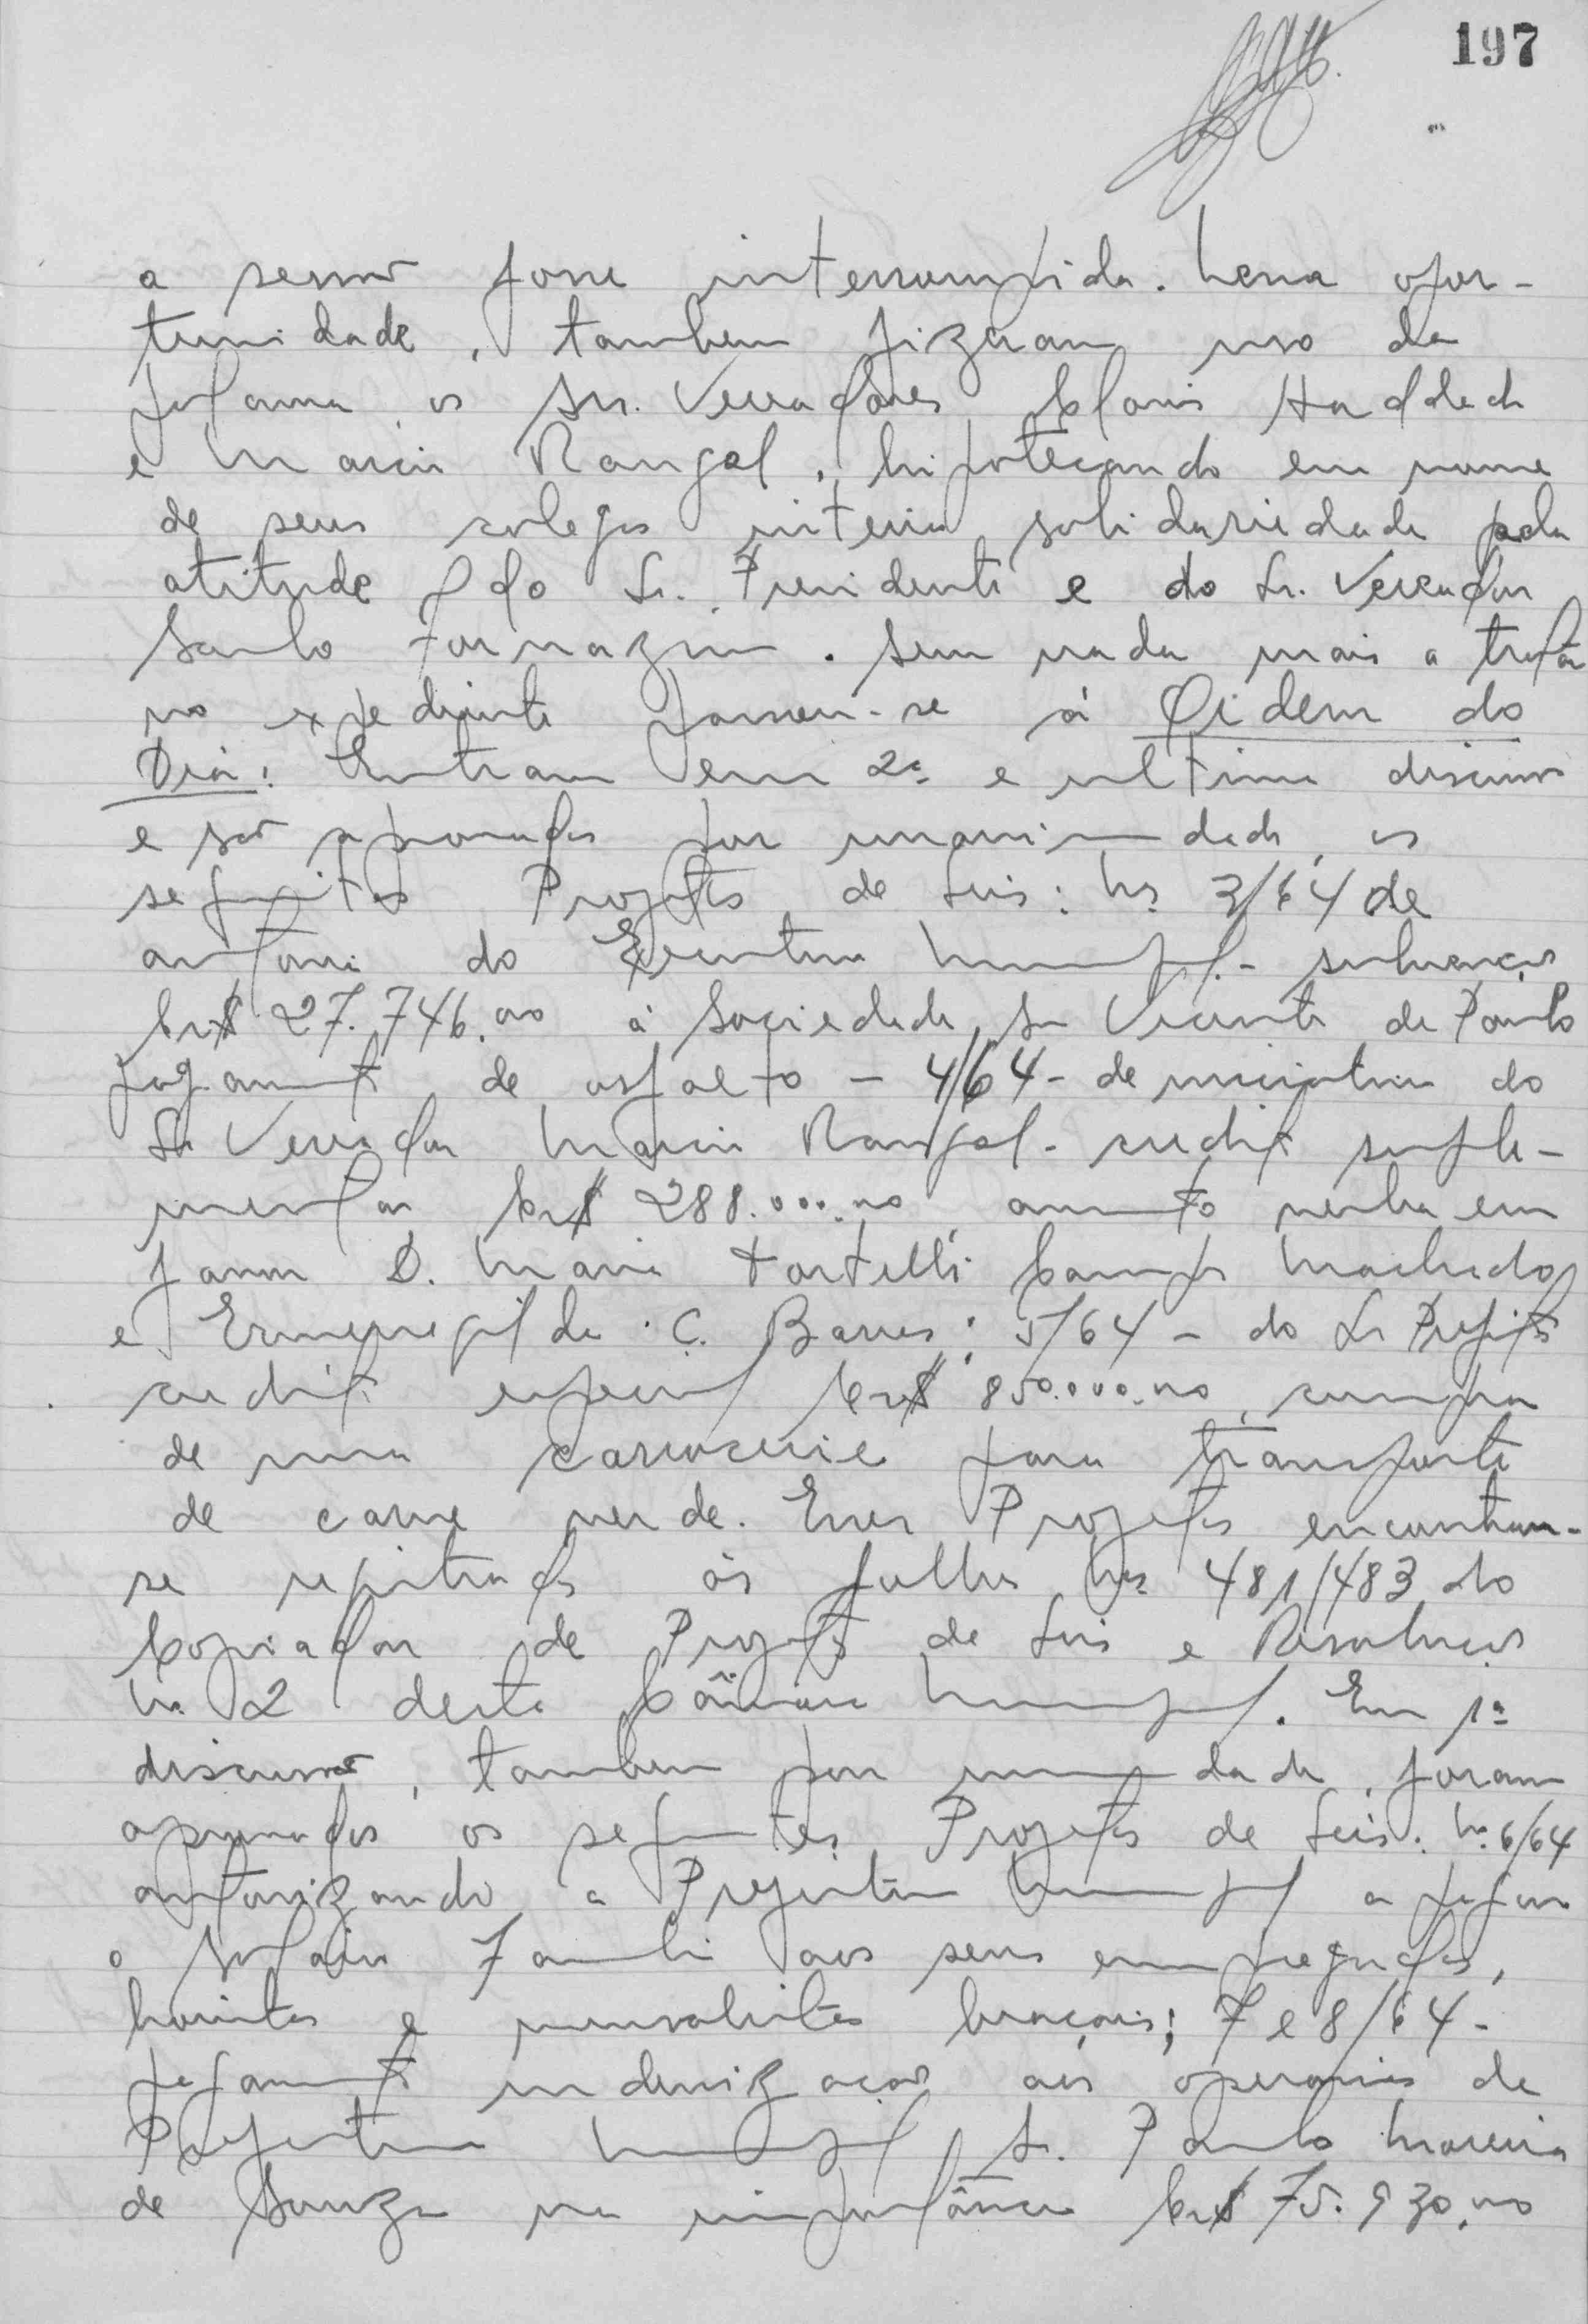 197
a sessão fosse interrompida. Nessa opor-
tunidade, tambem fizeram uso da
palavra os Srs. Vereadores Clovis Haddade
e Marcio Rangel, hipotecando em nome
de seus colegas inteira solidariedade pela
atitude do Sr. Presidente e do Sr. Vereador
Saulo Fornazin. Sem nada mais a tratar
no expediente passou-se á Ordem do
Dia: Entram em 2ª e ultima discussão
e são aprovados por unanimidade, os
seguintes Projetos de Leis: Nº 3/64 de
autoria do Executivo Municipal - subvenção
Cr$ 27.746,00 á Sociedade S. Vicente de Paulo
pagamento de asfalto - 4/64 - de iniciativa do
Sr. Vereador Marcio Rangel - credito suple-
mentar Cr$ 288.000,00 aumento verba em
favor D. Maria Tortelli Campos Machado
e Ermenegilda C. Barros; 5/64 - do Sr Prefeito
credito especial Cr$ 850.000,00, compra
de uma carroceria para transporte
de carne verde. Esses Projetos encontram-
se registrados ás folhas Nºs 481/483 do
Copiador de Projetos de Leis e Resoluções
Nº 2 desta Câmara Municipal. Em 1ª
discussão, tambem por unanimidade, foram
aprovados os seguintes Projetos de Leis: Nº 6/64
autorizando a Prefeitura Municipal a pagar
o Salario Familia aos seus empregados,
horistas e mensalistas braçais; 7 e 8/64 -
pagamento indenização aos operarios da
Prefeitura Municipal Sr. Paulo Moreira
de Souza na importância Cr$ 75.930,00